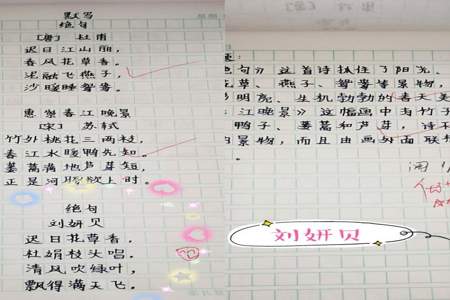 默写
绝句
[唐] 杜甫
迟日江山丽，
春风花草香。
泥融飞燕子，
沙暖睡鸳鸯。
惠崇春江晚景
[宋] 苏轼
竹外桃花三两枝，
春江水暖鸭先知。
蒌蒿满地芦芽短，
正是河豚欲上时。
绝句
刘妍贝
迟日花草香，
杜娟枝头唱。
清风吹绿叶，
飘得满天飞。
：
绝句》这首诗抓住了阳光、
花草、燕子、鸳鸯等景物，
明亮、生机勃勃的春天美
江晚景》这幅画中有竹子
鸭子、蒌蒿和芦芽，诗不
景物，而且由画外面联想
刘妍贝